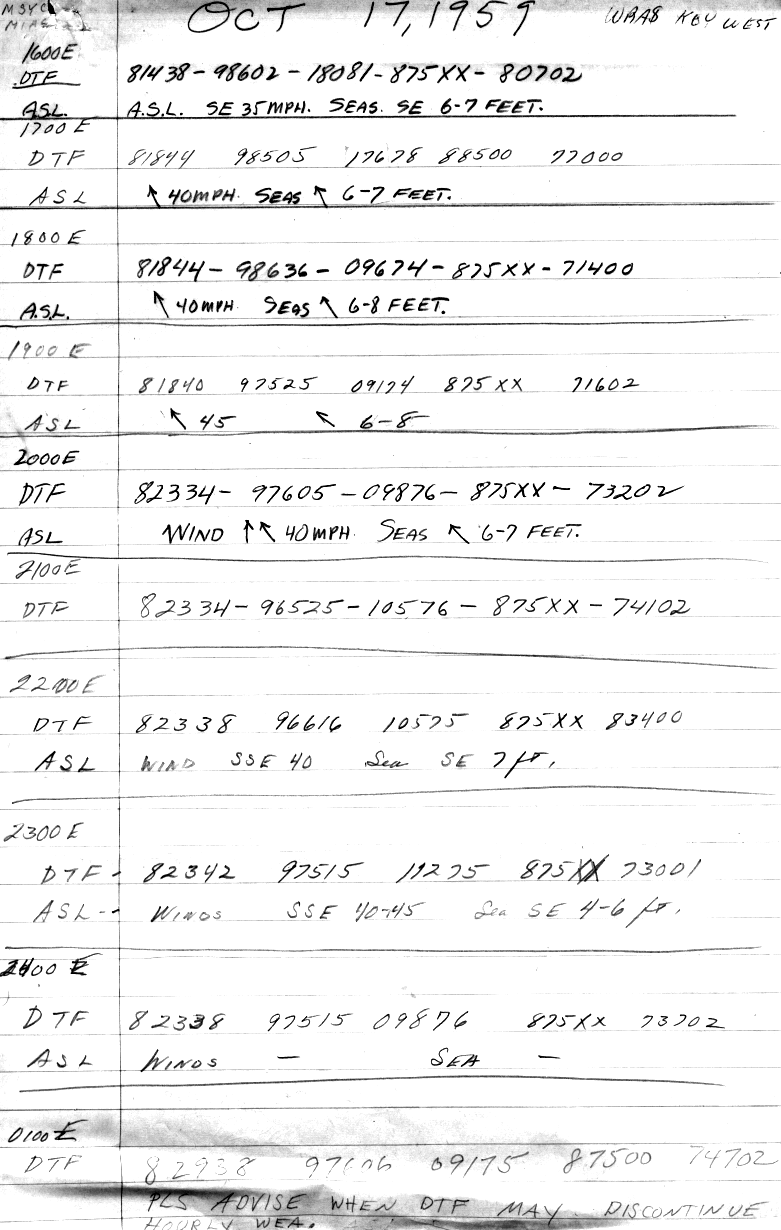 MSYC OCT 17, 1959 WBAS KEY WEST
MIAS
1600E
DTF 81438-98602-18081-875XX-80702
ASL. A.S.L. SE 35MPH. SEAS. SE 6-7 FEET.
1700 E
DTF 81844 98505 17678 88500 77000
ASL ↖ 40MPH. SEAS ↖ 6-7 FEET.
1800 E
DTF 81844-98636-09674-875XX-71400
A.S.L. ↖ 40MPH. SEAS ↖ 6-8 FEET.
1900 E
DTF 81840 97525 09174 875XX 71602
ASL ↖ 45 ↖ 6-8
2000E
DTF 82334-97605-09876-875XX-73202
ASL WIND ↑↖ 40MPH. SEAS ↖ 6-7 FEET.
2100E
DTF 82334-96525-10576-875XX-74102
2200E
DTF 82338 96616 10575 875XX 83400
ASL WIND SSE 40 Sea SE 7 ft.
2300 E
DTF- 82342 97515 11275 875XX 73001
ASL-- WINDS SSE 40-45 Sea SE 4-6 ft.
2400 E
DTF 82338 97515 09876 875XX 73702
ASL WINDS — SEA —
0100E
DTF 82938 97606 09175 87500 74702
PLS ADVISE WHEN DTF MAY DISCONTINUE
HOURLY WEA.